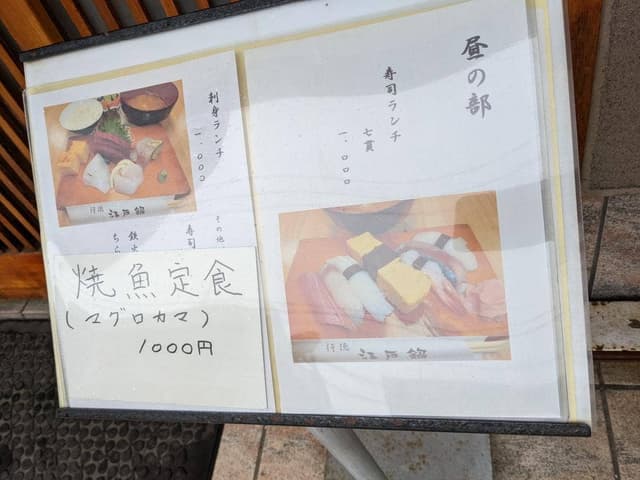 昼の部
寿司ランチ
七貫
一、〇〇〇
行徳
江戸銀
刺身ランチ
一、〇〇〇
行徳
江戸銀
その他
寿司
鉄火
ちら
焼魚定食
(マグロカマ)
1000円